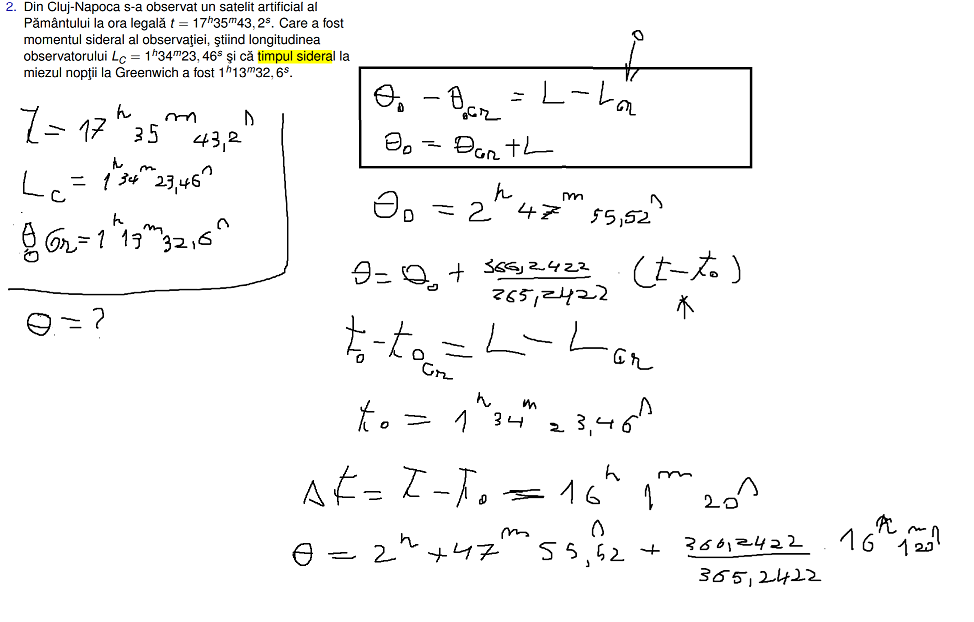 2. Din Cluj-Napoca s-a observat un satelit artificial al
Pământului la ora legală t = 17ʰ35ᵐ43,2ˢ. Care a fost
momentul sideral al observaţiei, ştiind longitudinea
observatorului L_C = 1ʰ34ᵐ23,46ˢ şi că timpul sideral la
miezul nopţii la Greenwich a fost 1ʰ13ᵐ32,6ˢ.
T = 17ʰ 35ᵐ 43,2ˢ
L_C = 1ʰ 34ᵐ 23,46ˢ
θ₀ Gr = 1ʰ 13ᵐ 32,6ˢ
θ = ?
0
θ₀ - θ₀Gr = L - L_Gr
θ₀ = θGr + L
θ₀ = 2ʰ 47ᵐ 55,52ˢ
θ = θ₀ + 366,2422 / 265,2422 · (t - t₀)
t₀ - t₀Gr = L - L_Gr
t₀ = 1ʰ 34ᵐ 23,46ˢ
Δt = T - T₀ = 16ʰ 1ᵐ 20ˢ
θ = 2ʰ + 47ᵐ 55,52ˢ + 366,2422 / 365,2422 · 16ʰ 1ᵐ 20ˢ